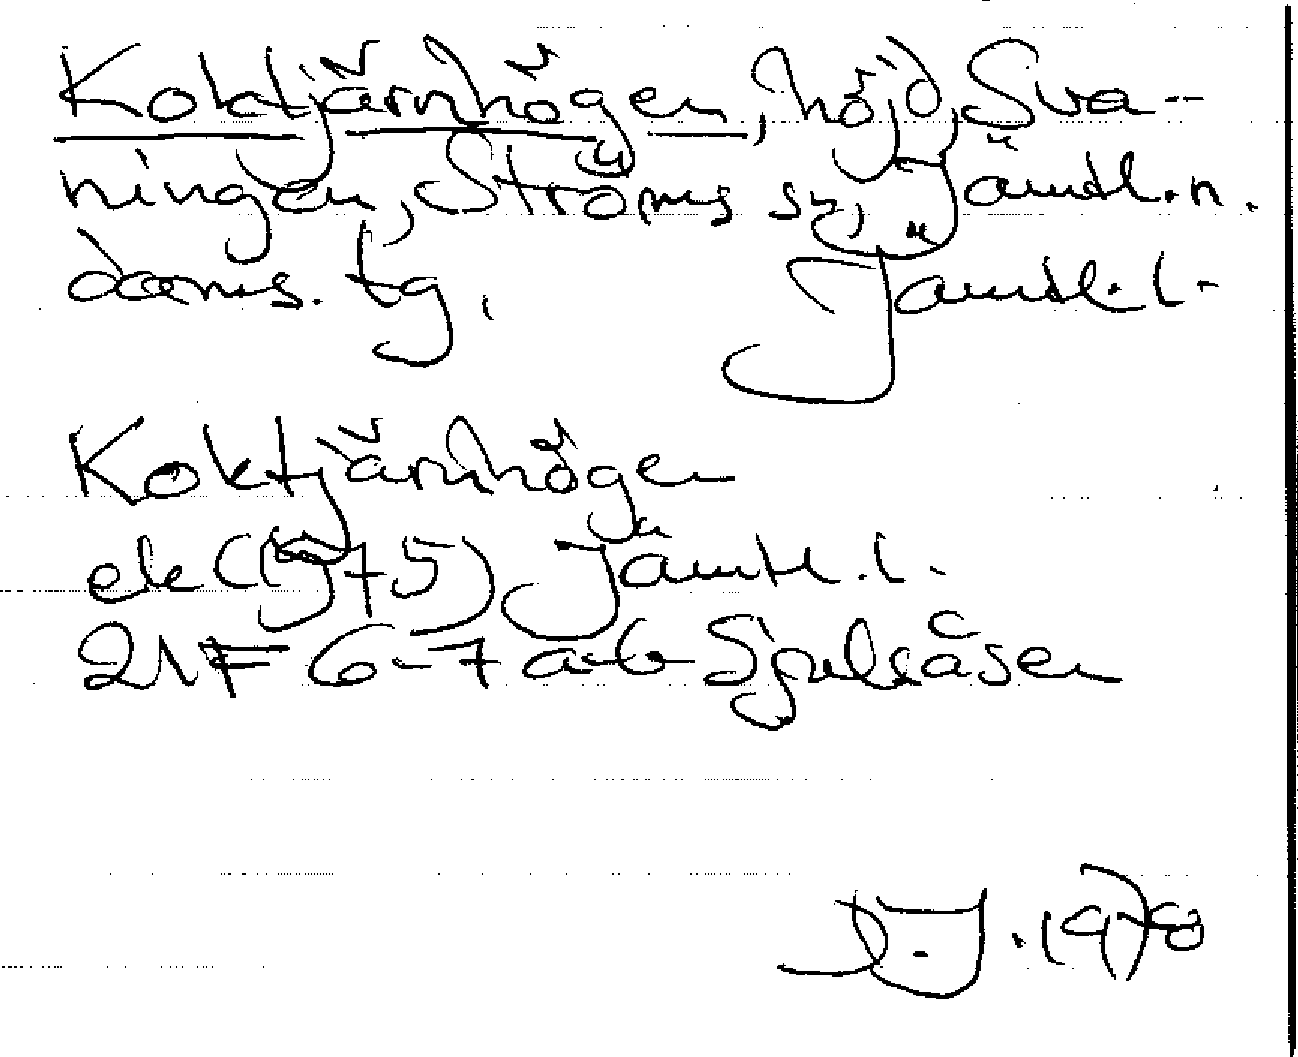 Koktjärnhögen, höjd, Sva-
ningen, Ströms sn, Jämtl. n.
doms. tg. Jämtl. l.
Koktjärnhögen
ek (1975) Jämtl. l.
21F 6-7 a-b Sjulsåsen
1978